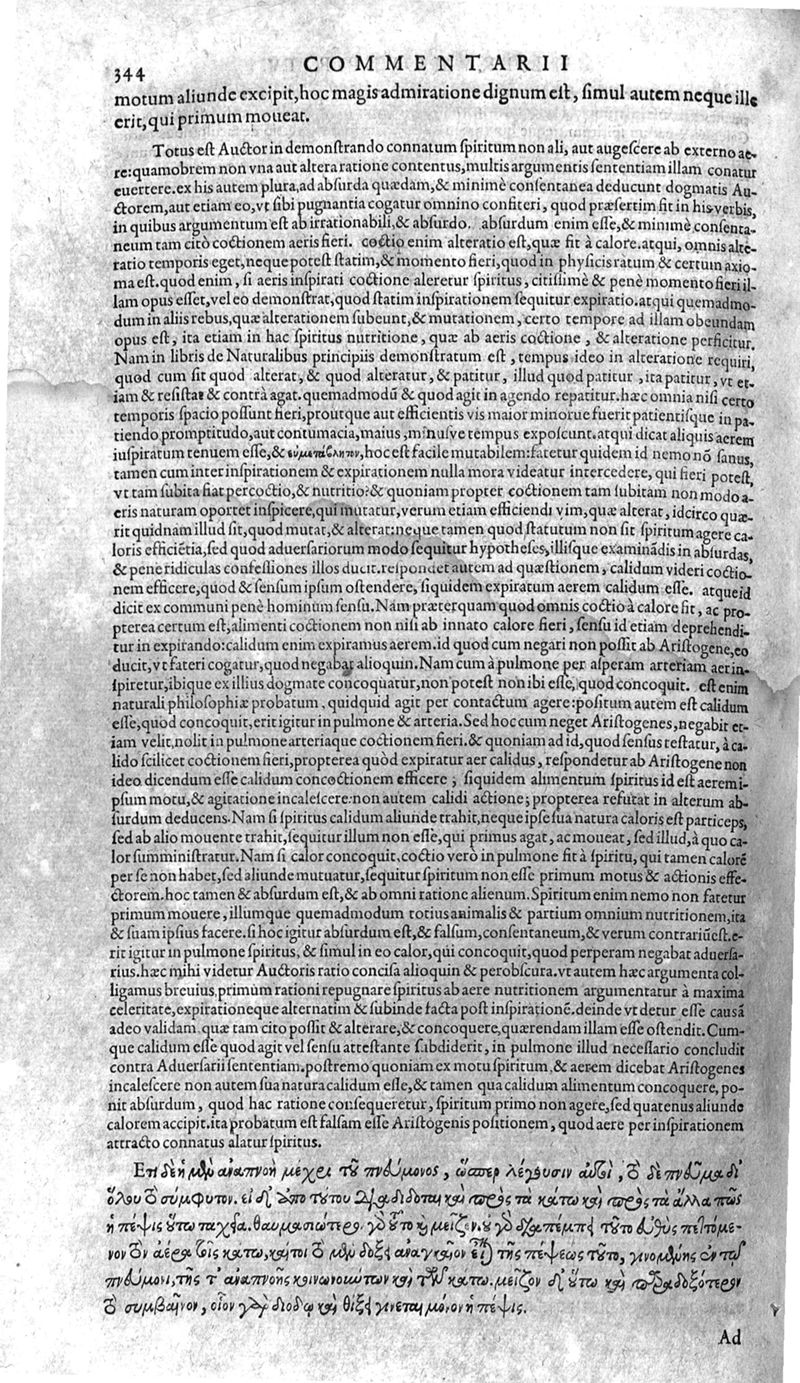 344
COMMENTARII
motum aliunde excipit, hoc magis admiratione dignum est, simul autem neque ille
erit, qui primum moueat.
Totus est Auctor in demonstrando connatum spiritum non ali, aut augescere ab externo ae-
re: quamobrem non vna aut altera ratione contentus, multis argumentis sententiam illam conatur
euertere. ex his autem plura, ad absurda quædam, & minimè consentanea deducunt dogmatis Au-
ctorem, aut etiam eo, vt sibi pugnantia cogatur omnino confiteri, quod præsertim fit in his verbis,
in quibus argumentum est ab irrationabili, & absurdo. absurdum enim esse, & minimè consenta-
neum tam citò coctionem aeris fieri. coctio enim alteratio est, quæ fit à calore. atqui, omnis alte-
ratio temporis eget, neque potest statim, & momento fieri, quod in physicis ratum & certum axio-
ma est. quod enim, si aeris inspirati coctione aleretur spiritus, citissimè & penè momento fieri il-
lam opus esset, vel eo demonstrat, quod statim inspirationem sequitur expiratio. atqui quemadmo-
dum in aliis rebus, quæ alterationem subeunt, & mutationem, certo tempore ad illam obeundam
opus est, ita etiam in hac spiritus nutritione, quæ ab aeris coctione, & alteratione perficitur.
Nam in libris de Naturalibus principiis demonstratum est, tempus ideo in alteratione requiri,
quod cum sit quod alterat, & quod alteratur, & patitur, illud quod patitur, ita patitur, vt et-
iam & resistat & contrà agat. quemadmodū & quod agit in agendo repatitur. hæc omnia nisi certo
temporis spacio possunt fieri, proutque aut efficientis vis maior minorue fuerit patientisque in pa-
tiendo promptitudo, aut contumacia, maius, minusve tempus exposcunt. atqui dicat aliquis aerem
inspiratum tenuem esse, & εὐμετάβλητον, hoc est facile mutabilem: fatetur quidem id nemo nō sanus,
tamen cum inter inspirationem & expirationem nulla mora videatur intercedere, qui fieri potest,
vt tam subita fiat percoctio, & nutritio? & quoniam propter coctionem tam subitam non modo a-
eris naturam oportet inspicere, qui mutatur, verum etiam efficiendi vim, quæ alterat, idcirco quæ-
rit quidnam illud sit, quod mutat, & alterat: neque tamen quod statutum non sit spiritum agere ca-
loris efficiētia, sed quod aduersariorum modo sequitur hypotheses, illisque examinādis in absurdas,
& pene ridiculas confessiones illos ducit. respondet autem ad quæstionem, calidum videri coctio-
nem efficere, quod & sensum ipsum ostendere, siquidem expiratum aerem calidum esse. atque id
dicit ex communi penè hominum sensu. Nam præterquam quod omnis coctio à calore fit, ac pro-
pterea certum est, alimenti coctionem non nisi ab innato calore fieri, sensu id etiam deprehendi-
tur in expirando: calidum enim expiramus aerem. id quod cum negari non possit ab Aristogene, eo
ducit, vt fateri cogatur, quod negabat alioquin. Nam cum à pulmone per asperam arteriam aer in-
spiretur, ibique ex illius dogmate concoquatur, non potest non ibi esse, quod concoquit. est enim
naturali philosophiæ probatum, quidquid agit per contactum agere: positum autem est calidum
esse, quod concoquit, erit igitur in pulmone & arteria. Sed hoc cum neget Aristogenes, negabit et-
iam velit, nolit in pulmone arteriaque coctionem fieri. & quoniam ad id, quod sensus testatur, à ca-
lido scilicet coctionem fieri, propterea quòd expiratur aer calidus, respondetur ab Aristogene non
ideo dicendum esse calidum concoctionem efficere; siquidem alimentum spiritus id est aerem i-
psum motu, & agitatione incalescere: non autem calidi actione; propterea refutat in alterum ab-
surdum deducens. Nam si spiritus calidum aliunde trahit, neque ipse sua natura caloris est particeps,
sed ab alio mouente trahit, sequitur illum non esse, qui primus agat, ac moueat, sed illud, à quo ca-
lor summinístratur. Nam si calor concoquit. coctio verò in pulmone fit à spiritu, qui tamen calorē
per se non habet, sed aliunde mutuatur, sequitur spiritum non esse primum motus & actionis effe-
ctorem. hoc tamen & absurdum est, & ab omni ratione alienum. Spiritum enim nemo non fatetur
primum mouere, illumque quemadmodum totius animalis & partium omnium nutritionem, ita
& suam ipsius facere. si hoc igitur absurdum est, & falsum, consentaneum, & verum contrariū est. e-
rit igitur in pulmone spiritus, & simul in eo calor, qui concoquit, quod perperam negabat aduersa-
rius. hæc mihi videtur Auctoris ratio concisa alioquin & perobscura. vt autem hæc argumenta col-
ligamus breuius, primùm rationi repugnare spiritus ab aere nutritionem argumentatur à maxima
celeritate, expirationeque alternatim & subinde facta post inspirationē. deinde vt detur esse causā
adeo validam. quæ tam cito possit & alterare, & concoquere, quærendam illam esse ostendit. Cum-
que calidum esse quod agit vel sensu attestante subdiderit, in pulmone illud necessario concludit
contra Aduersarii sententiam. postremo quoniam ex motu spiritum, & aerem dicebat Aristogenes
incalescere non autem sua natura calidum esse, & tamen qua calidum alimentum concoquere, po-
nit absurdum, quod hac ratione consequeretur, spiritum primo non agere, sed quatenus aliunde
calorem accipit. ita probatum est falsam esse Aristogenis positionem, quod aere per inspirationem
attracto connatus alatur spiritus.
Ετι δὲ ἡ μὲν ἀναπνοὴ μέχρι τοῦ πνεύμονος, ὥσπερ λέγουσιν αὐτοὶ, τὸ δὲ πνεῦμα δι'
ὅλου τὸ σύμφυτον. εἰ δ' ἀπὸ τούτου διαδίδοται καὶ πρὸς τὰ κάτω καὶ πρὸς τὰ ἄλλα πῶς
ἡ πέψις οὕτω ταχεῖα. θαυμασιώτερον γὰρ τοῦτο καὶ μεῖζον. οὐ γὰρ διαπέμπει τοῦτο εὐθὺς πεττόμε-
νον τὸν ἀέρα τοῖς κάτω, καίτοι τὸ μὲν δόξει ἀναγκαῖον εἶναι τῆς πέψεως τοῦτο, γινομένης ἐν τῷ
πνεύμονι, τῆς τ' ἀναπνοῆς κοινωνούντων καὶ τῶν κάτω. μεῖζον δ' οὕτω καὶ παραδοξότερον
τὸ συμβαῖνον, οἷον γὰρ διόδῳ καὶ θίξει γίνεται μόνον ἡ πέψις.
Ad